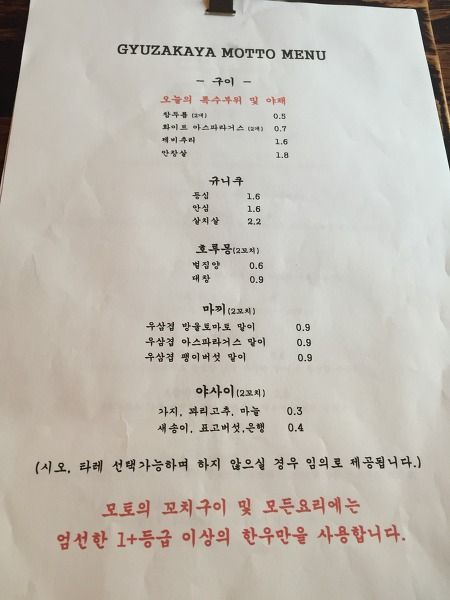 GYUZAKAYA MOTTO MENU
- 구이 -
오늘의 특수부위 및 야채
참두릅 (2개) 0.5
화이트 아스파라거스 (2개) 0.7
제비추리 1.6
안창살 1.8
규니쿠
등심 1.6
안심 1.6
살치살 2.2
호루몽(2꼬치)
벌집양 0.6
대창 0.9
마끼(2꼬치)
우삼겹 방울토마토 말이 0.9
우삼겹 아스파라거스 말이 0.9
우삼겹 팽이버섯 말이 0.9
야사이(2꼬치)
가지, 꽈리고추, 마늘 0.3
새송이, 표고버섯,은행 0.4
(시오, 타레 선택가능하며 하지 않으실 경우 임의로 제공됩니다.)
모토의 꼬치구이 및 모든요리에는
엄선한 1+등급 이상의 한우만을 사용합니다.